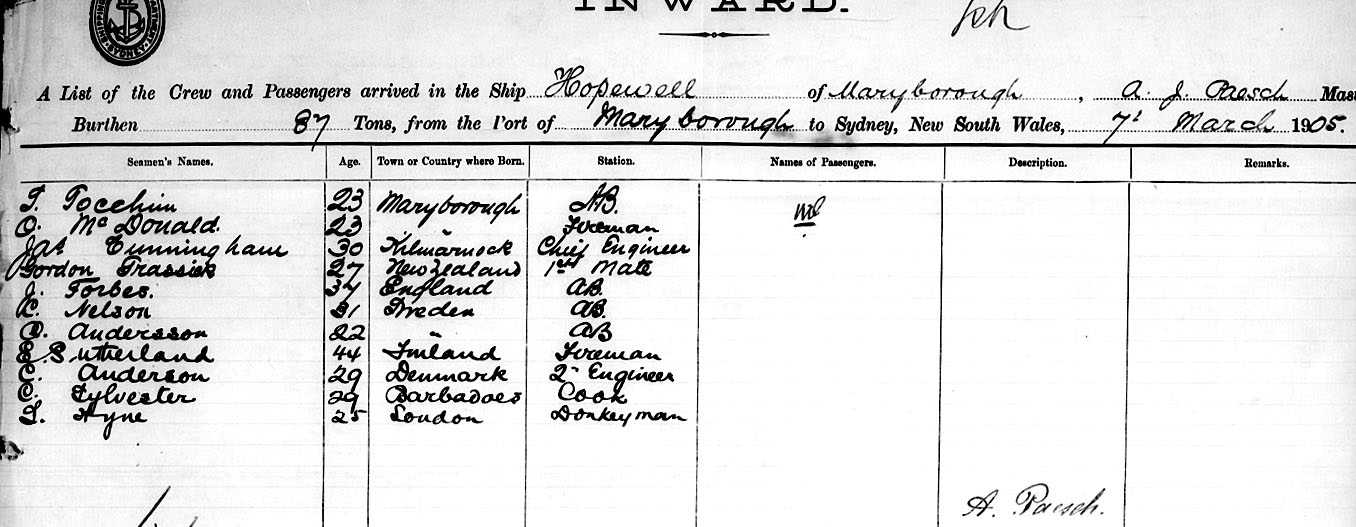 INWARD.
A List of the Crew and Passengers arrived in the Ship Hopewell of Maryborough, A. J. Paesch Mas
Burthen 87 Tons, from the Port of Maryborough to Sydney, New South Wales, 7th March 1905.
Seamen's Names. Age. Town or Country where Born. Station. Names of Passengers. Description. Remarks.
T. Tocchini 23 Maryborough AB. nil
O. McDonald. 23 " Fireman
Jas Cunningham 30 Kilmarnock Chief Engineer
Gordon Grassick 27 New Zealand 1st Mate
J. Forbes. 37 England AB.
C. Nelson 31 Sweden AB.
O. Andersson 22 " AB
E. Sutherland 44 Finland Fireman
C. Anderson 29 Denmark 2n Engineer
C. Sylvester 29 Barbadoes Cook
Hyne 25 London Donkeyman
A. Paesch.